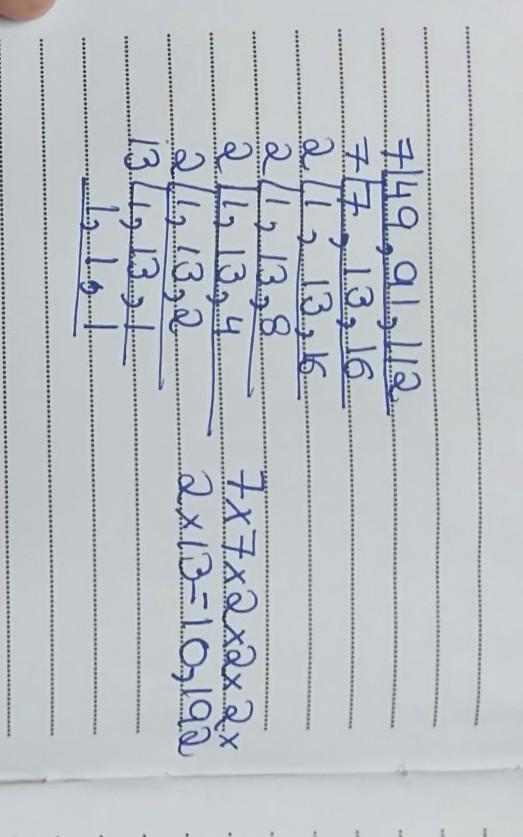 7|49, 91, 112
7|7, 13, 16
2|1, 13, 16
2|1, 13, 8
2|1, 13, 4
2|1, 13, 2
13|1, 13, 1
1, 1, 1
7x7x2x2x2x
2x13=10,192